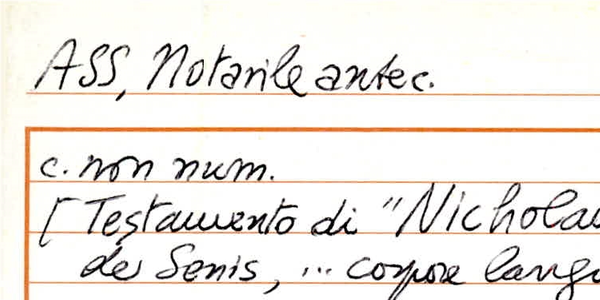 ASS, Notarile antec.
c. non num.
[Testamento di "Nichola
de Senis, ... corpore